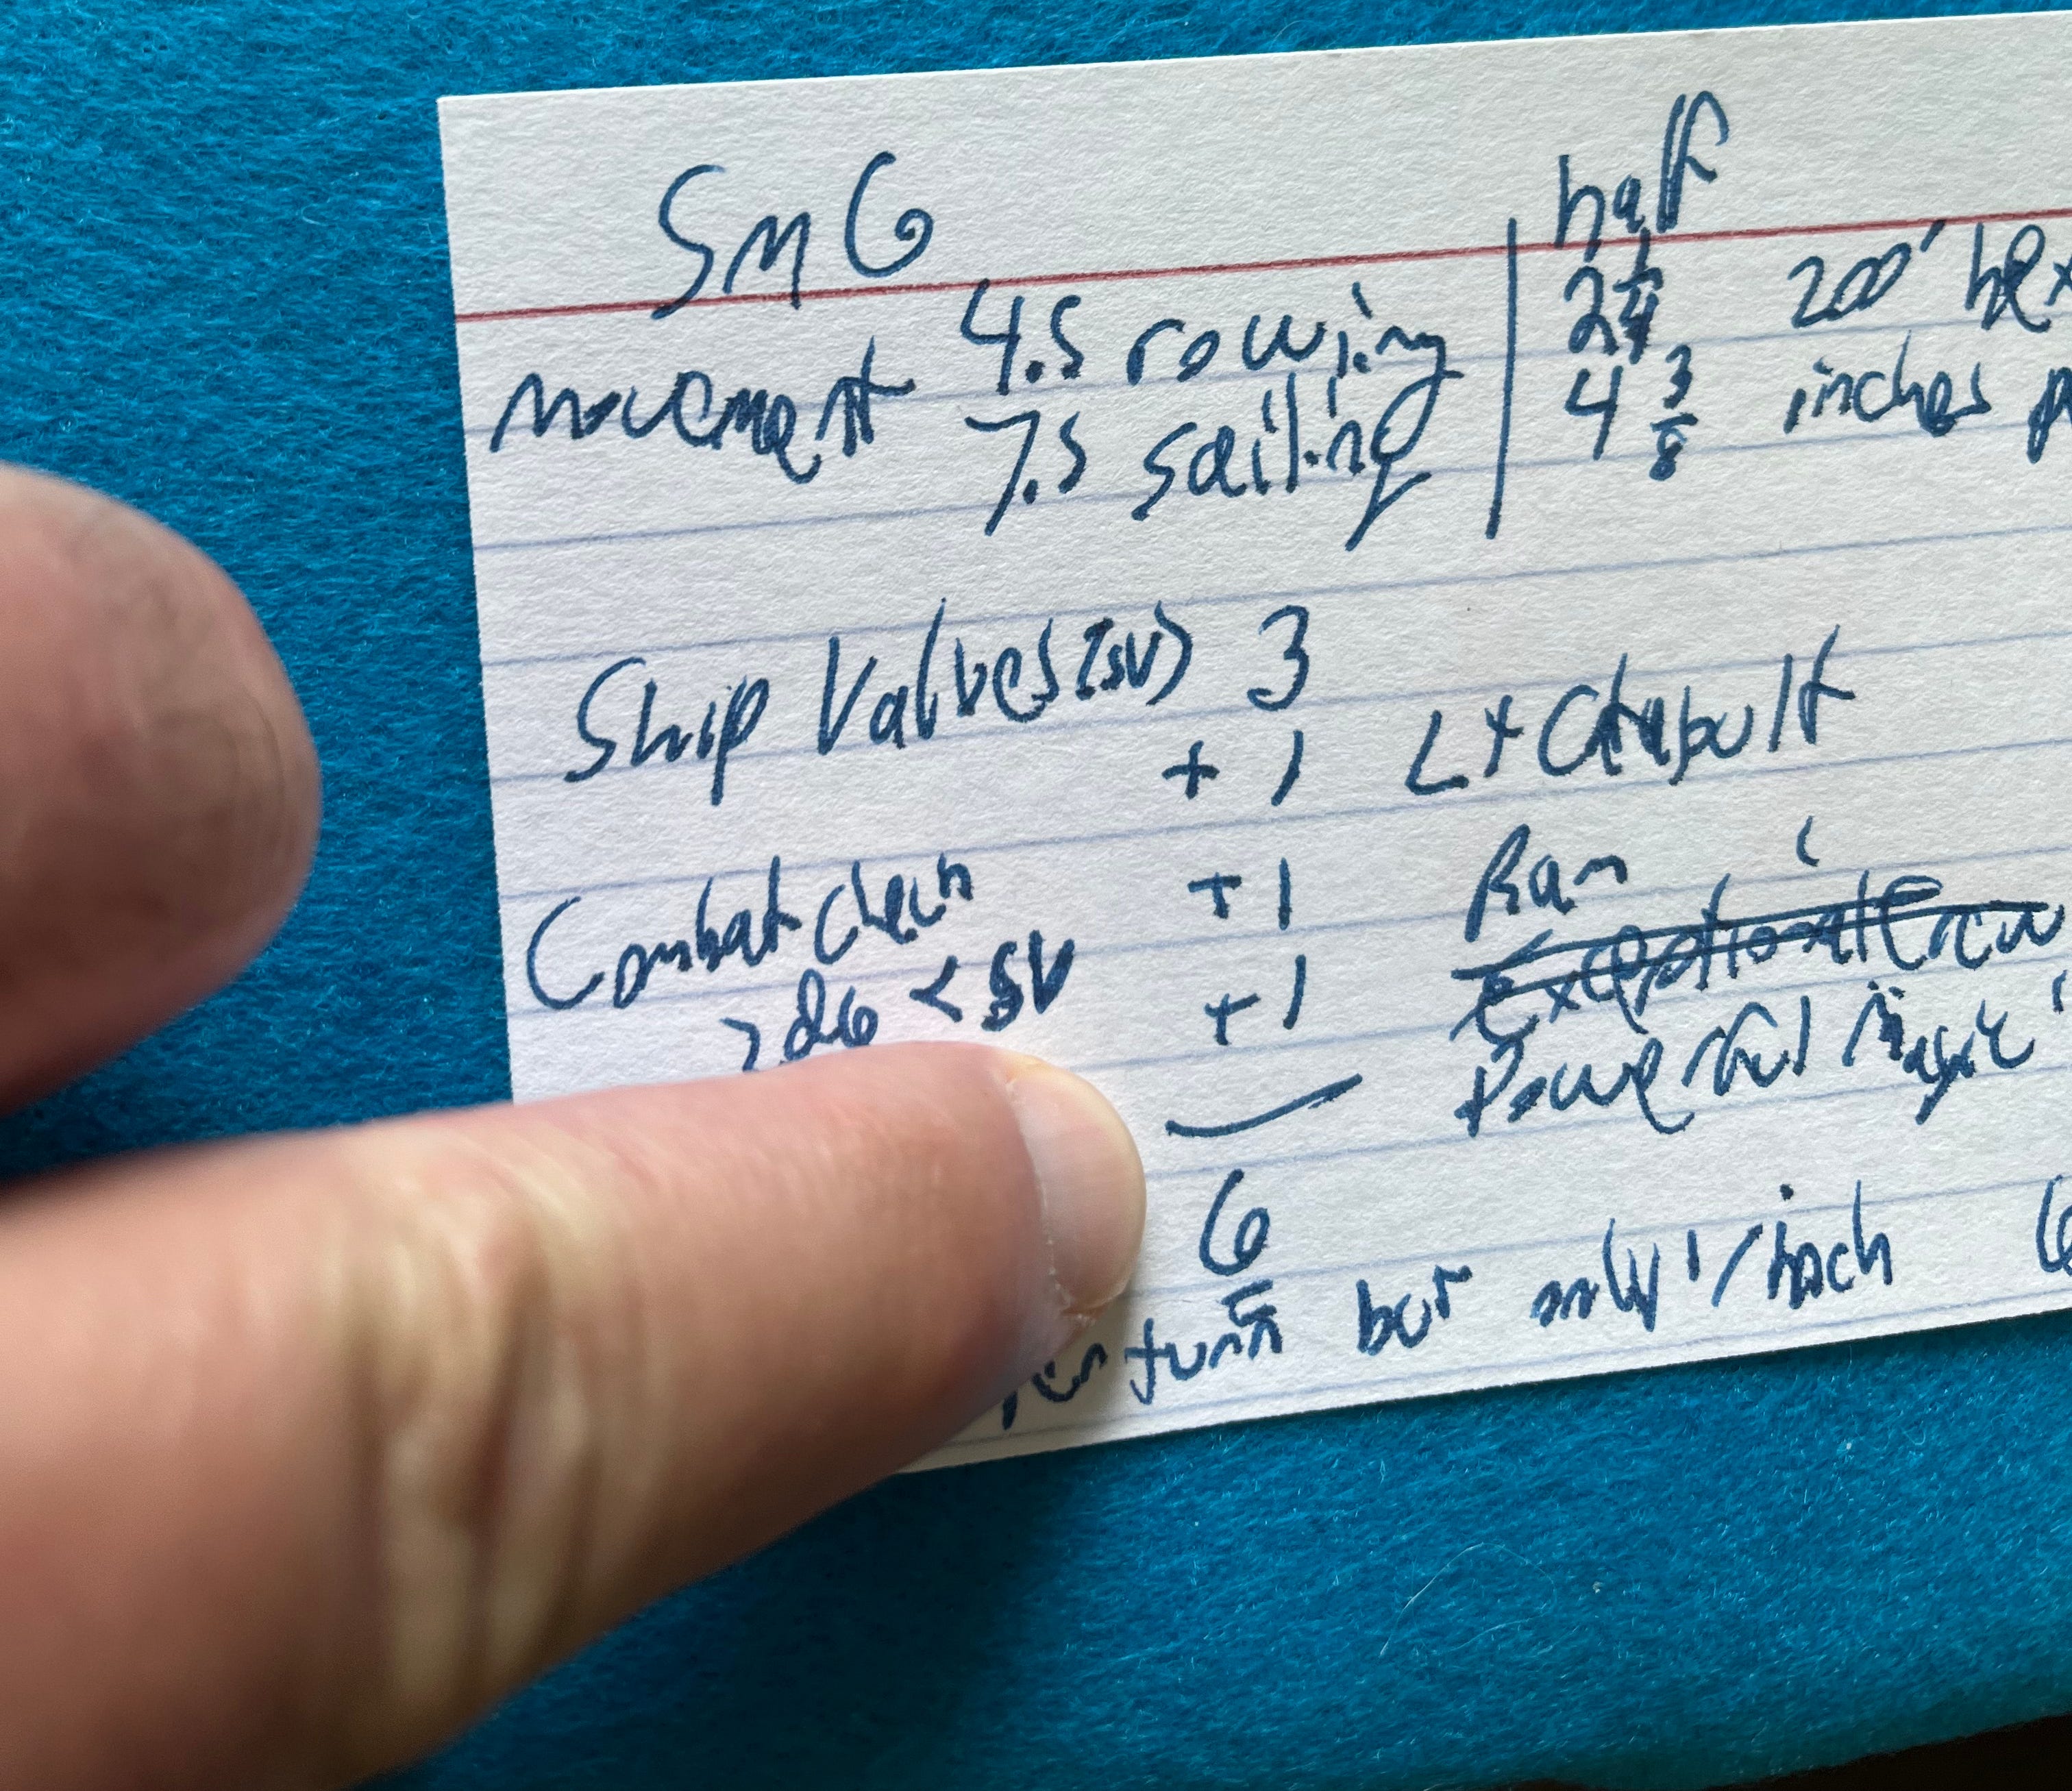 Sm G half
movement 4.5 rowing 2 1/4 200' hex
7.5 sailing 4 3/8 inches
Ship Values (SV) 3
+1 Lt Catapult
Combat check +1 Ram
2d6 < SV +1 Exceptional Crew
Powerful Magic
6
turn but only 1/hach